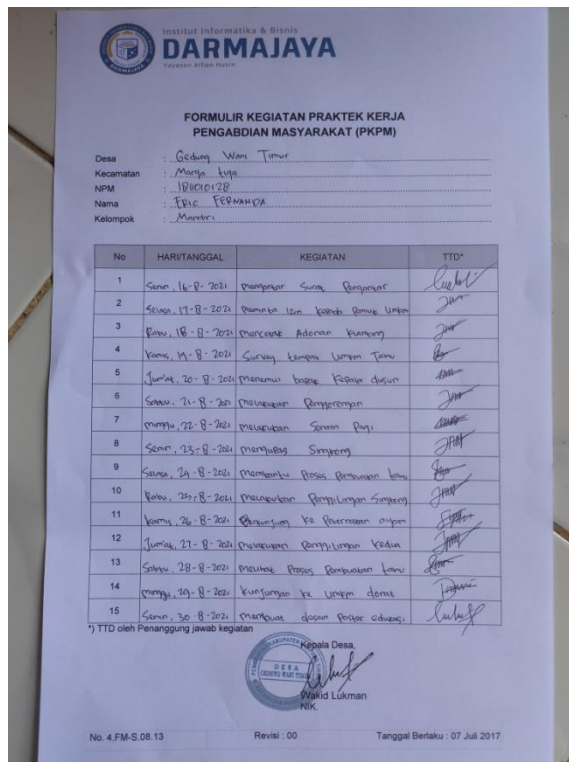 Institut Informatika & Bisnis
DARMAJAYA
Yayasan Alfian Husin
FORMULIR KEGIATAN PRAKTEK KERJA
PENGABDIAN MASYARAKAT (PKPM)
Desa : Gedung Wani Timur
Kecamatan : Marga tiga
NPM : 1811010128
Nama : ERIC FERNANDA
Kelompok : Mandiri
No HARI/TANGGAL KEGIATAN TTD*
1 Senin, 16-8-2021 mengantar Surat Pengantar
2 Selasa, 17-8-2021 meminta izin kepada Pemilik Umkm
3 Rabu, 18-8-2021 mencetak Adonan
4 Kamis, 19-8-2021 Survey tempat Umkm Tahu
5 Jum'at, 20-8-2021 menemui bapak Kepala dusun
6 Sabtu, 21-8-2021 melakukan Penggorengan
7 minggu, 22-8-2021 melakukan Senam Pagi
8 Senin, 23-8-2021 mengupas Singkong
9 Selasa, 24-8-2021 membantu Proses Pembuatan tahu
10 Rabu, 25-8-2021 melakukan Penggilingan Singkong
11 Kamis, 26-8-2021 Berkunjung ke Peternakan ayam
12 Jum'at, 27-8-2021 melakukan Penggilingan Kedua
13 Sabtu, 28-8-2021 melihat Proses Pembuatan tahu
14 minggu, 29-8-2021 kunjungan ke umkm donat
15 Senin, 30-8-2021 membuat Poster edukasi
*) TTD oleh Penanggung jawab kegiatan
Kepala Desa,
DESA
GEDUNG WANI TIMUR
Wakid Lukman
NIK.
No. 4.FM-S.08.13 Revisi : 00 Tanggal Berlaku : 07 Juli 2017